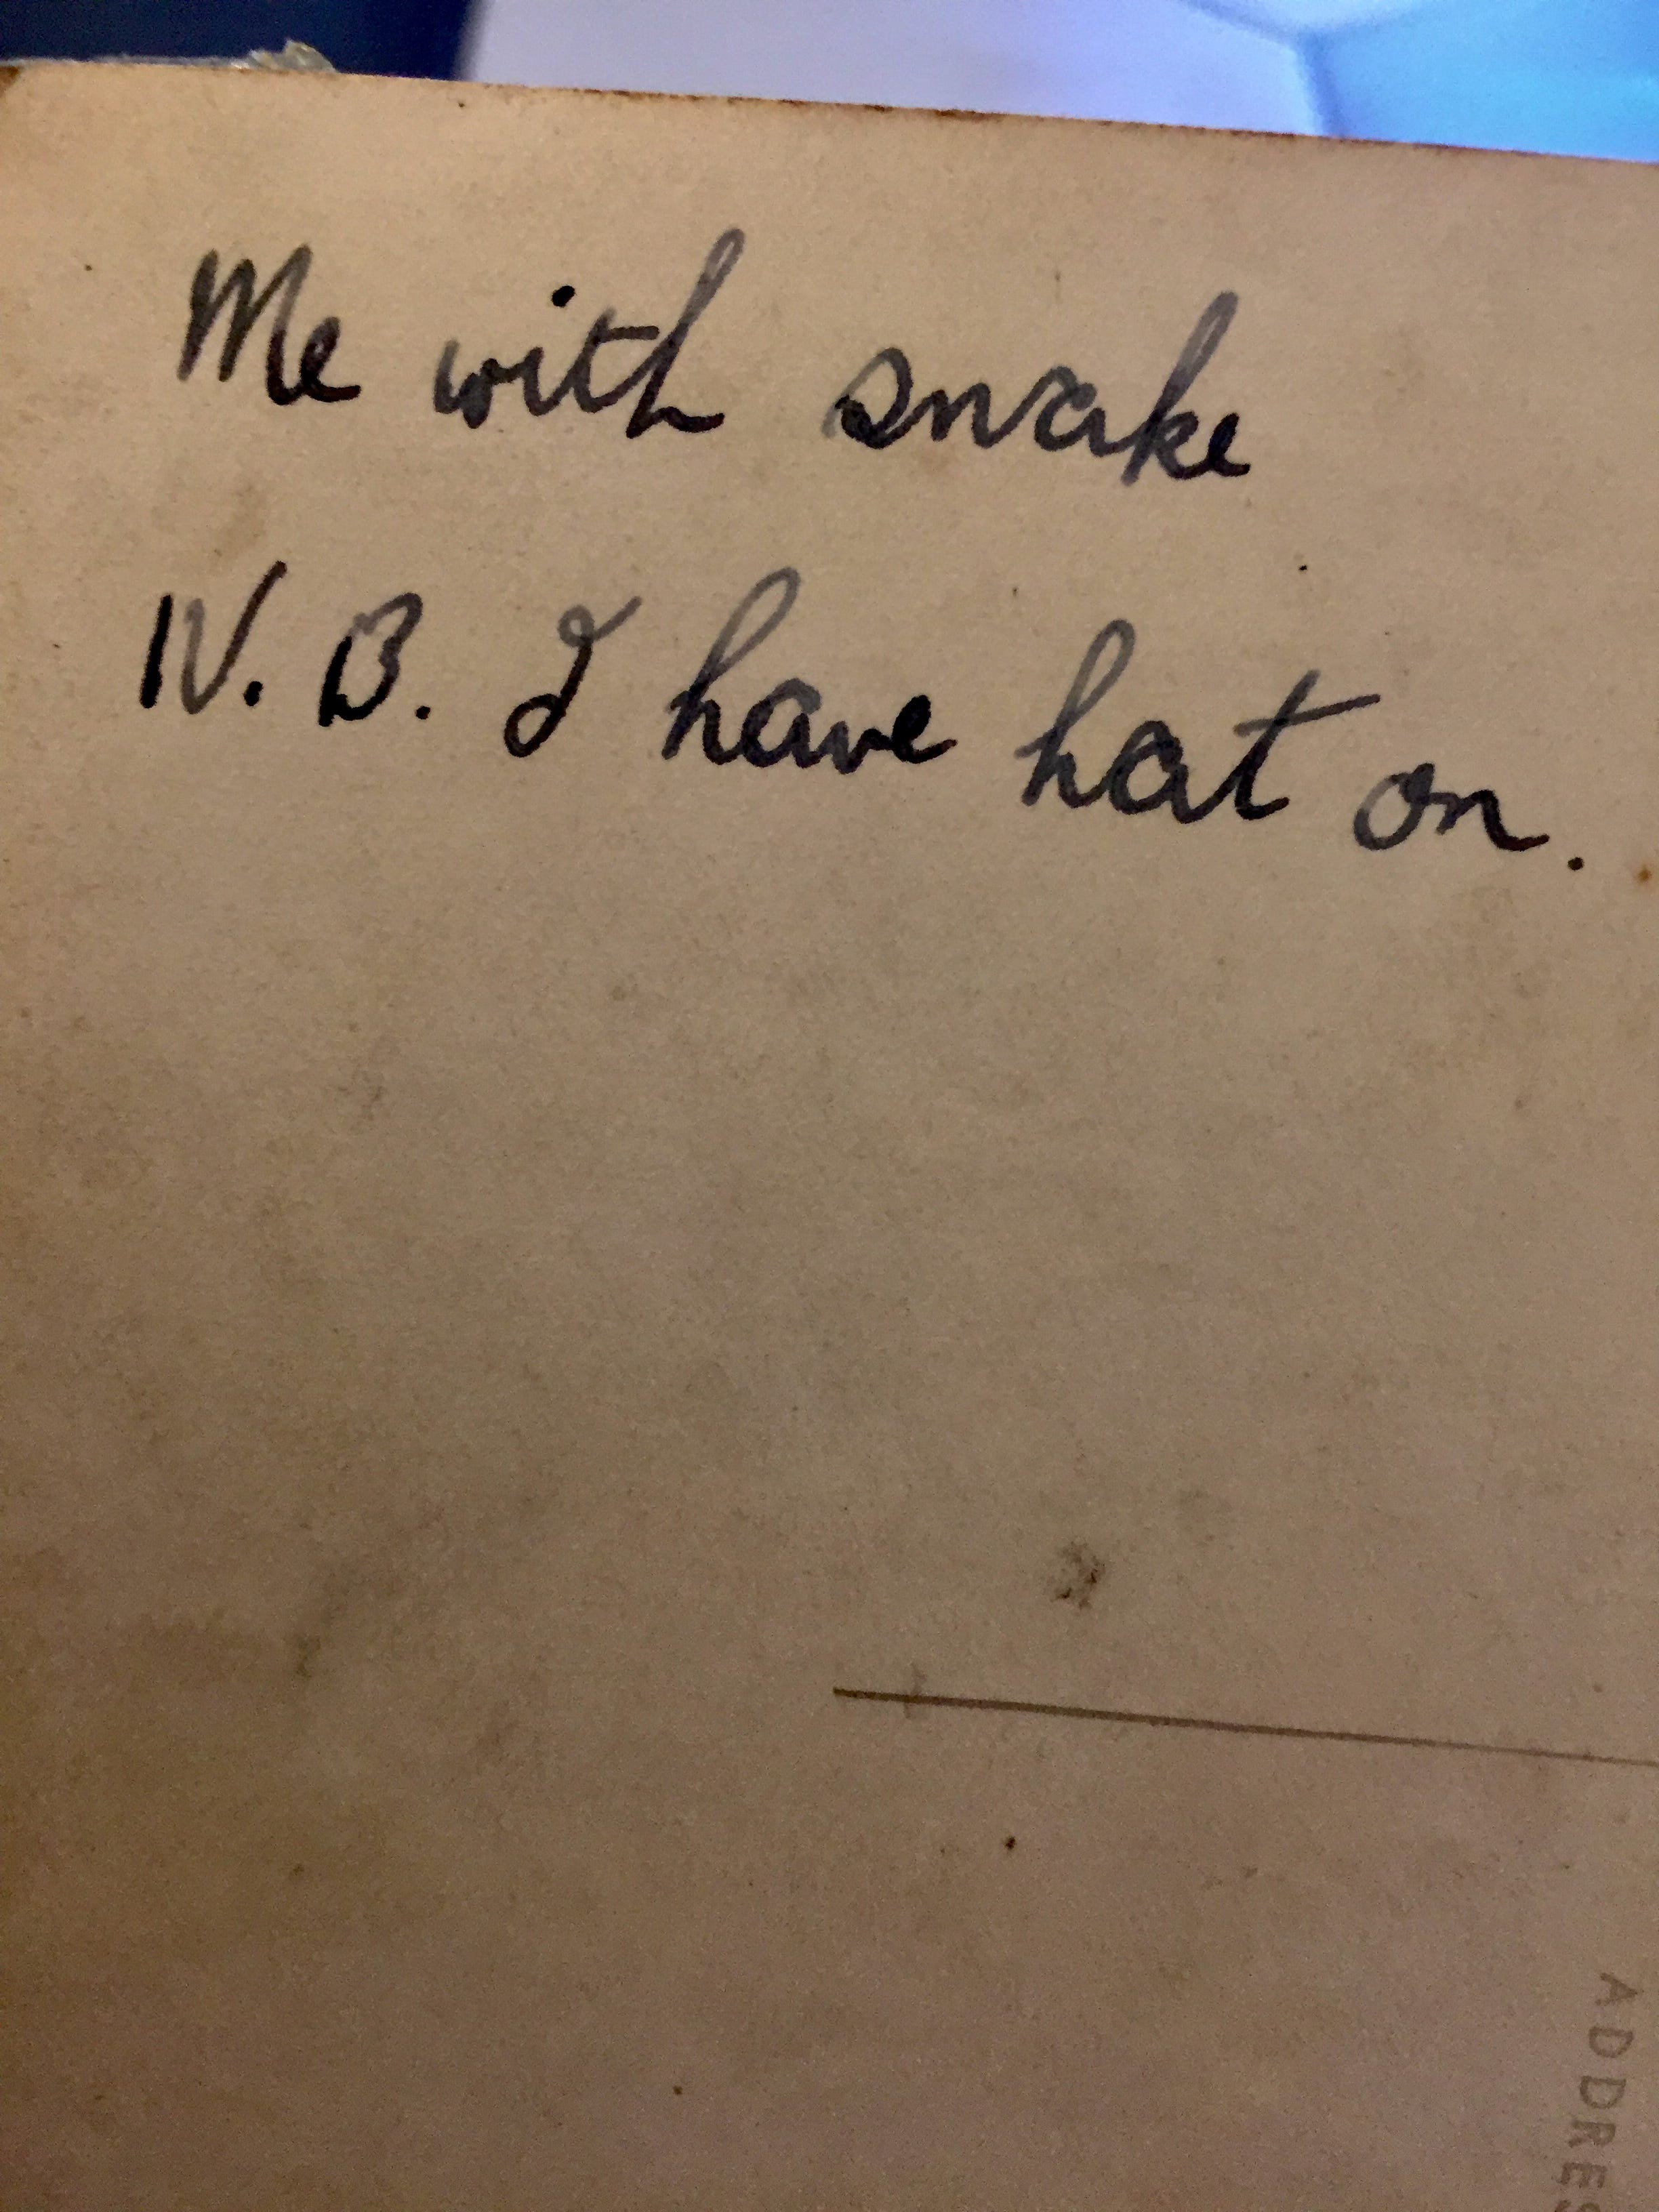 Me with snake
N. B. I have hat on.
ADDRES